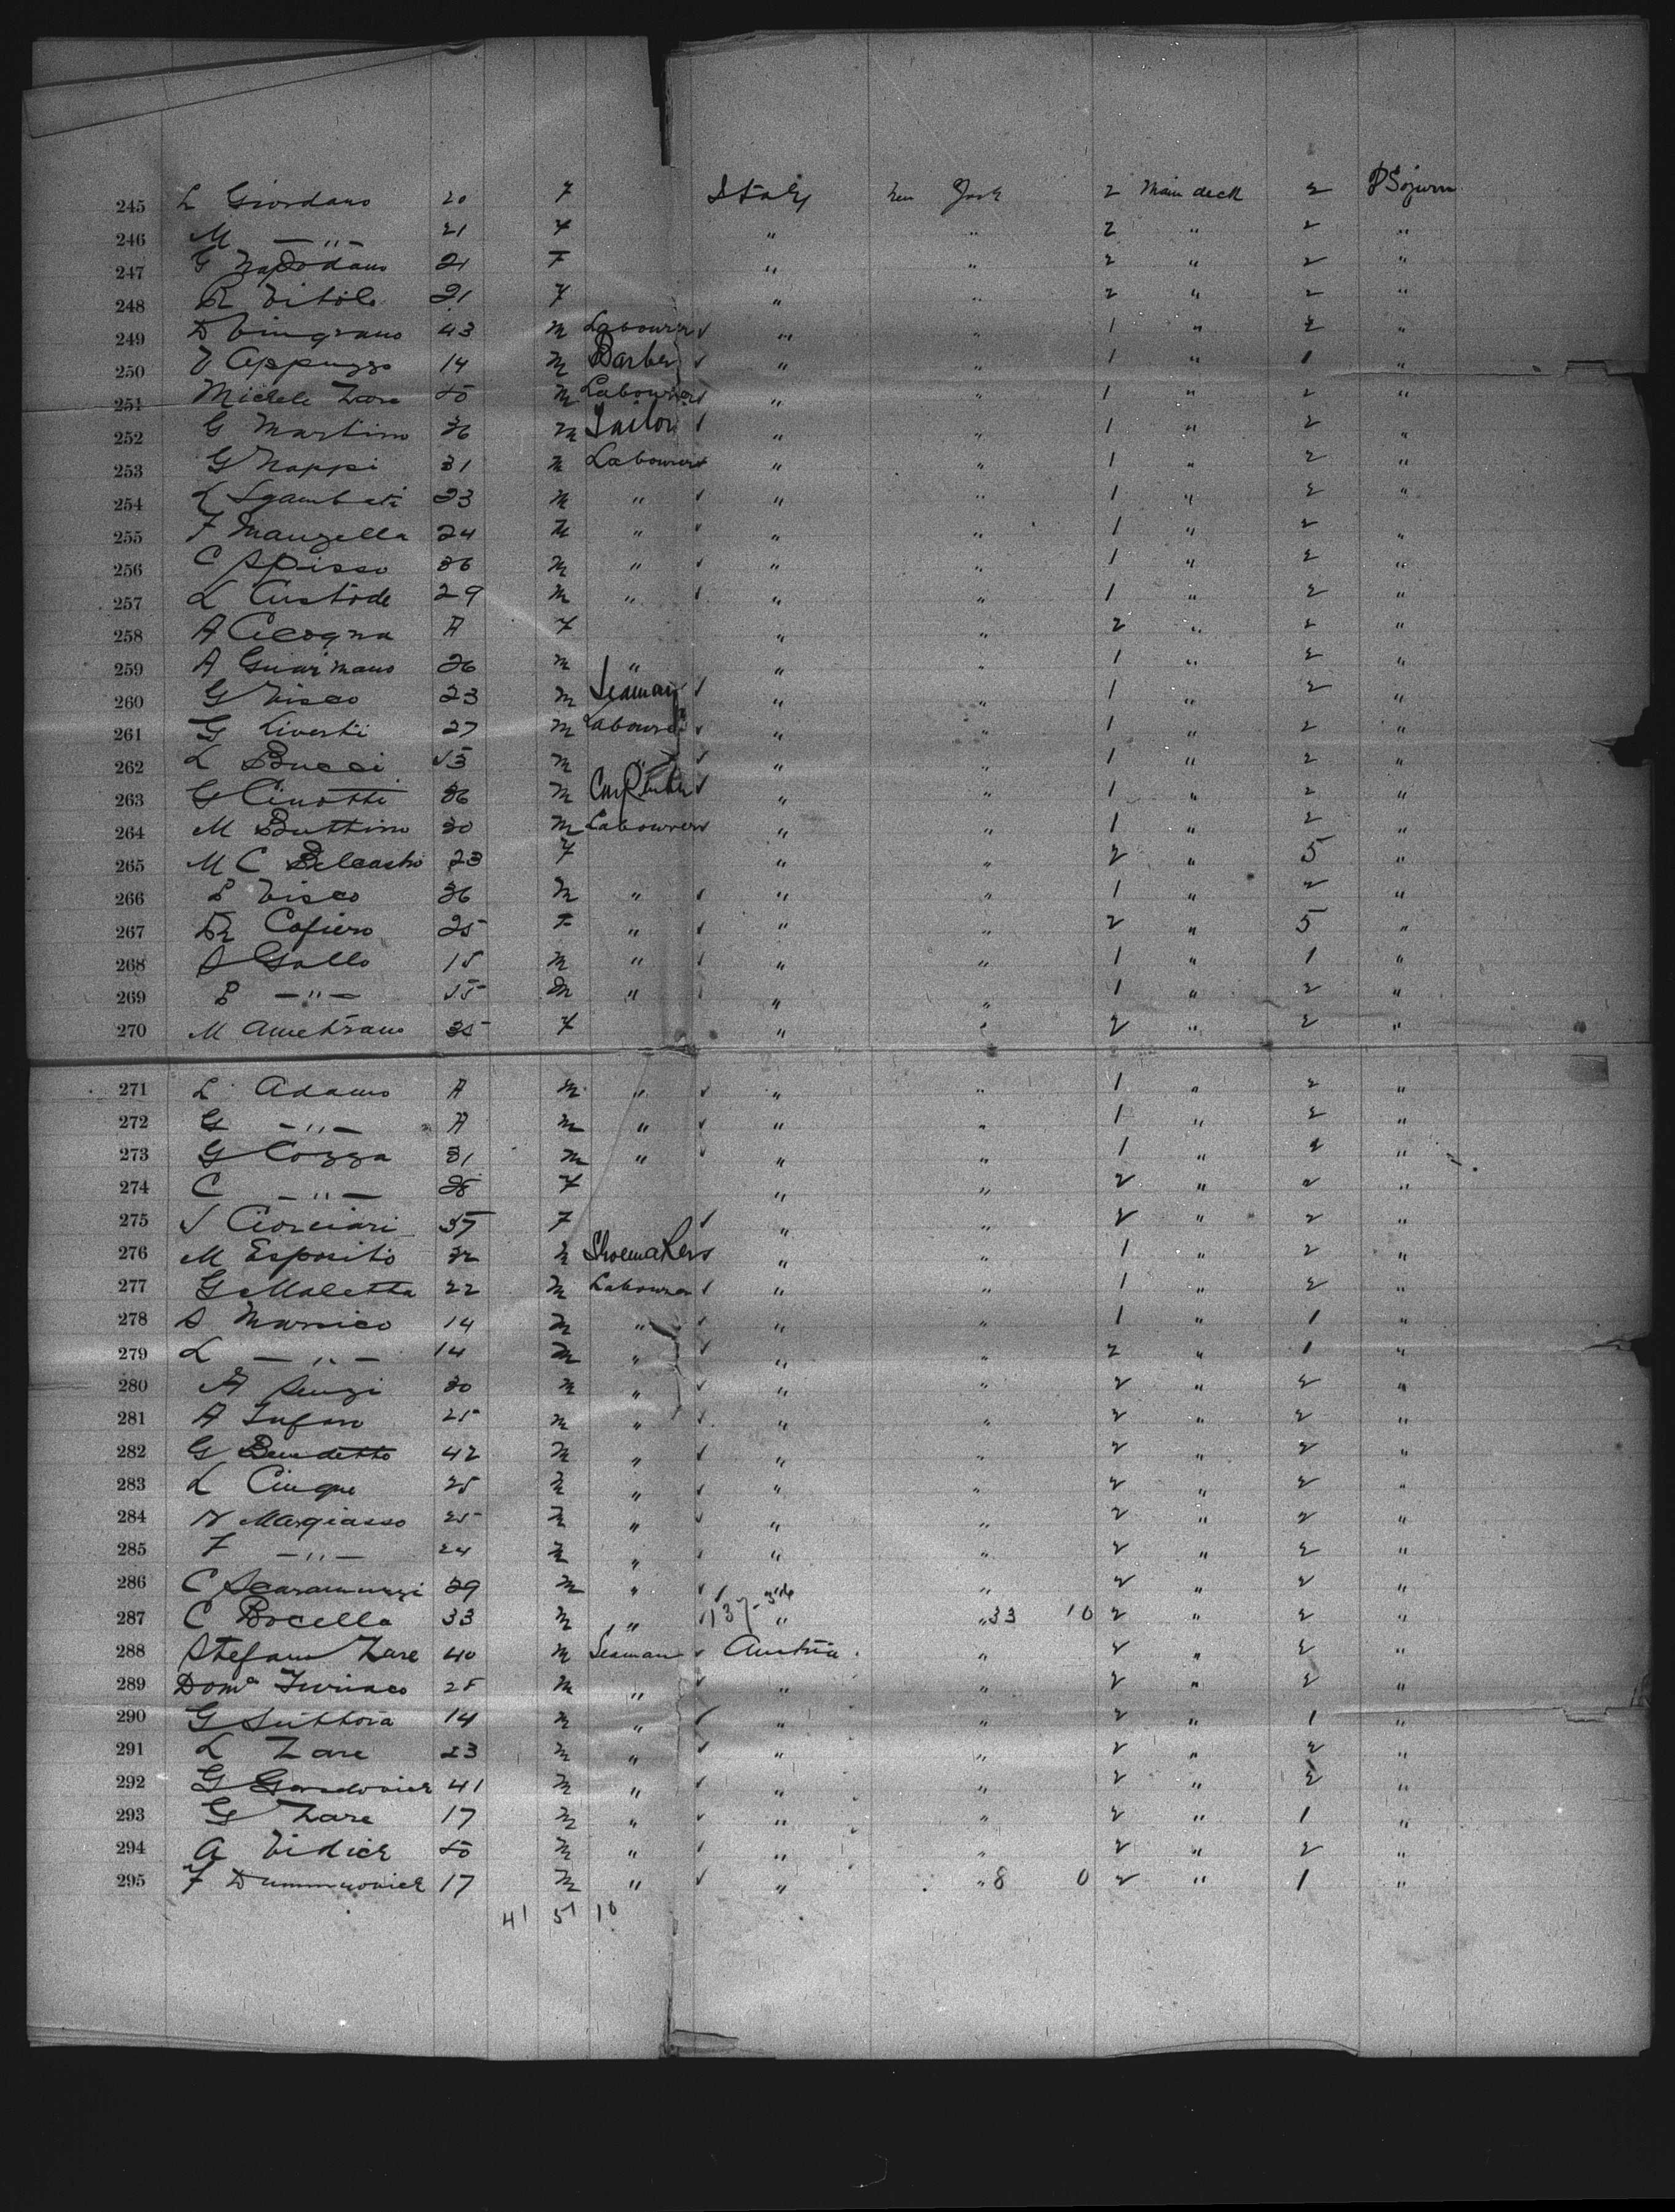 245 L Giordano 20 F Italy New York 2 Main deck 2 P Sojurn
246 M —"— 21 F " " 2 " 2 "
247 G Napodano 21 F " " 2 " 2 "
248 R Vitolo 21 F " " 2 " 2 "
249 D Vingrano 43 M Labourer " " 1 " 2 "
250 V Appuzzo 14 M Barber " " 1 " 1 "
251 Michele Zare M Labourer " " 1 " 2 "
252 G Martino 36 M Tailor " " 1 " 2 "
253 G Nappi 31 M Labourer " " 1 " 2 "
254 L Sgambati 23 M " " " 1 " 2 "
255 F Manzella 24 M " " " 1 " 2 "
256 C Spisso 36 M " " " 1 " 2 "
257 L Custode 29 M " " " 1 " 2 "
258 A Cicogna A F " " 2 " 2 "
259 A Guarinano 26 M " " " 1 " 2 "
260 G Visco 23 M Seaman " " 1 " 2 "
261 G Liverti 27 M Labourer " " 1 " 2 "
262 L Bucci 53 M " " " 1 " 2 "
263 G Cinotti 36 M Carpenter " " 1 " 2 "
264 M Buttino 30 M Labourer " " 1 " 2 "
265 M C Belcastro 23 F " " 2 " 5 "
266 P Visco 36 M " " " 1 " 2 "
267 R Cafiero 25 F " " " 2 " 5 "
268 S Gallo 15 M " " " 1 " 1 "
269 P —"— 55 M " " " 1 " 2 "
270 M Ametrano 35 F " " 2 " 2 "
271 L Adamo A M " " " 1 " 2 "
272 G —"— A M " " " 1 " 2 "
273 G Cozza 31 M " " " 1 " 2 "
274 C —"— 28 F " " 2 " 2 "
275 S Ciorciari 37 F " " 2 " 2 "
276 M Esposito 32 M Shoemaker " " 1 " 2 "
277 G Maletta 22 M Labourer " " 1 " 2 "
278 S Marsico 14 M " " " 1 " 1 "
279 L —"— 14 M " " " 2 " 1 "
280 A Senzi 30 M " " " 2 " 2 "
281 A Tufaro 25 M " " " 2 " 2 "
282 G Benedetto 42 M " " " 2 " 2 "
283 L Cinque 25 M " " " 2 " 2 "
284 N Margiasso 25 M " " " 2 " 2 "
285 F —"— 24 M " " " 2 " 2 "
286 C Scaramuzzi 29 M " " " 2 " 2 "
287 C Bocella 33 M " 137 " " 33 10 2 " 2 "
288 Stefano Zare 40 M Seaman Austria " 2 " 2 "
289 Domo 28 M " " " 2 " 2 "
290 G Suttora 14 M " " " 2 " 1 "
291 L Zare 23 M " " " 2 " 2 "
292 G 41 M " " " 2 " 2 "
293 G Zare 17 M " " " 2 " 1 "
294 A Vidich M " " " 2 " 2 "
295 F 17 M " " " 8 0 2 " 1 "
41 51 10